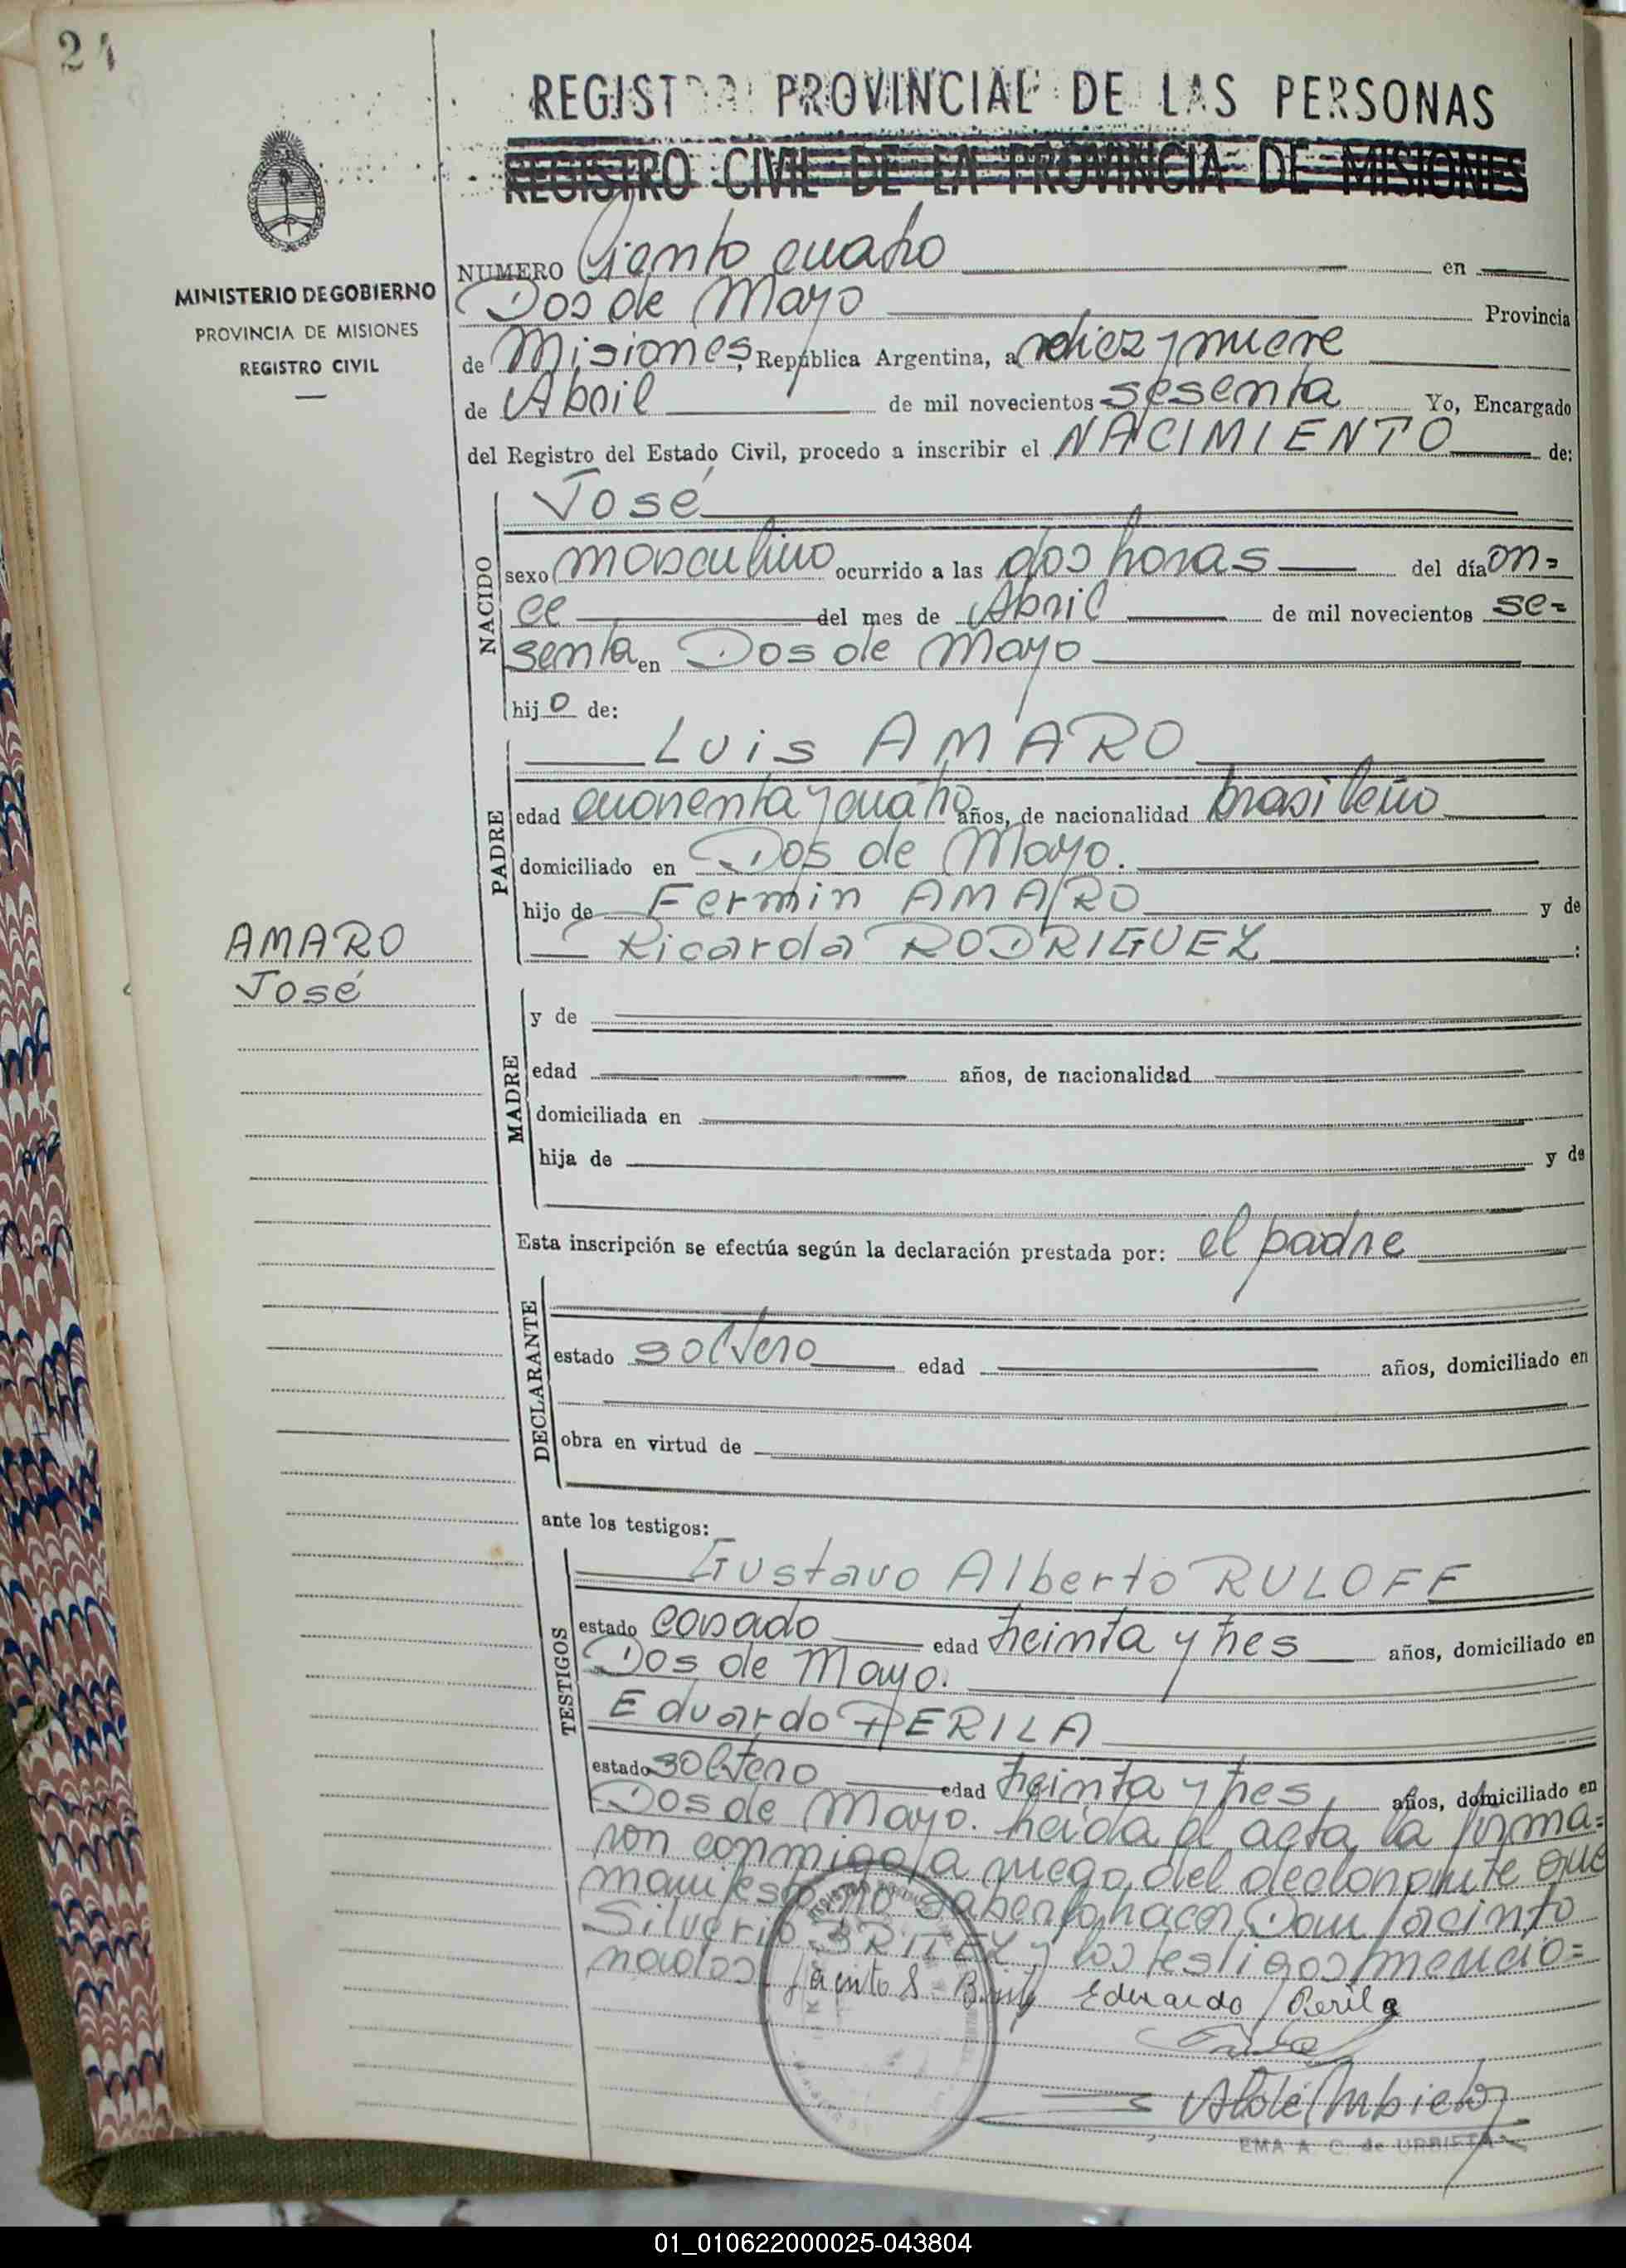 24
REGISTRO PROVINCIAL DE LAS PERSONAS
REGISTRO CIVIL DE LA PROVINCIA DE MISIONES
MINISTERIO DE GOBIERNO
PROVINCIA DE MISIONES
REGISTRO CIVIL
NUMERO Ciento cuatro en
Dos de Mayo Provincia
de Misiones, República Argentina, a diez y nueve
de Abril de mil novecientos sesenta Yo, Encargado
del Registro del Estado Civil, procedo a inscribir el NACIMIENTO de:
NACIDO
José
sexo masculino ocurrido a las dos horas del día on=
ce del mes de Abril de mil novecientos se=
senta en Dos de Mayo
hijo de:
PADRE
Luis AMARO
edad cuarenta y cuatro años, de nacionalidad brasileño
domiciliado en Dos de Mayo.
hijo de Fermin AMARO y de
Ricarda RODRIGUEZ :
AMARO
José
MADRE
y de
edad años, de nacionalidad
domiciliada en
hija de y de
Esta inscripción se efectúa según la declaración prestada por: el padre
DECLARANTE
estado soltero edad años, domiciliado en
obra en virtud de
ante los testigos:
TESTIGOS
Gustavo Alberto RULOFF
estado casado edad treinta y tres años, domiciliado en
Dos de Mayo.
Eduardo PERILA
estado soltero edad treinta y tres años, domiciliado en
Dos de Mayo. Leída el acta, la firma=
ron conmigo, a ruego del declarante que
manifestó no saberlo hacer, Don Jacinto
Silverio BRITEZ y los testigos mencio=
nados. Jacinto S. Eduardo Perila
EMA A. C. de URBIETA
01_010622000025-043804